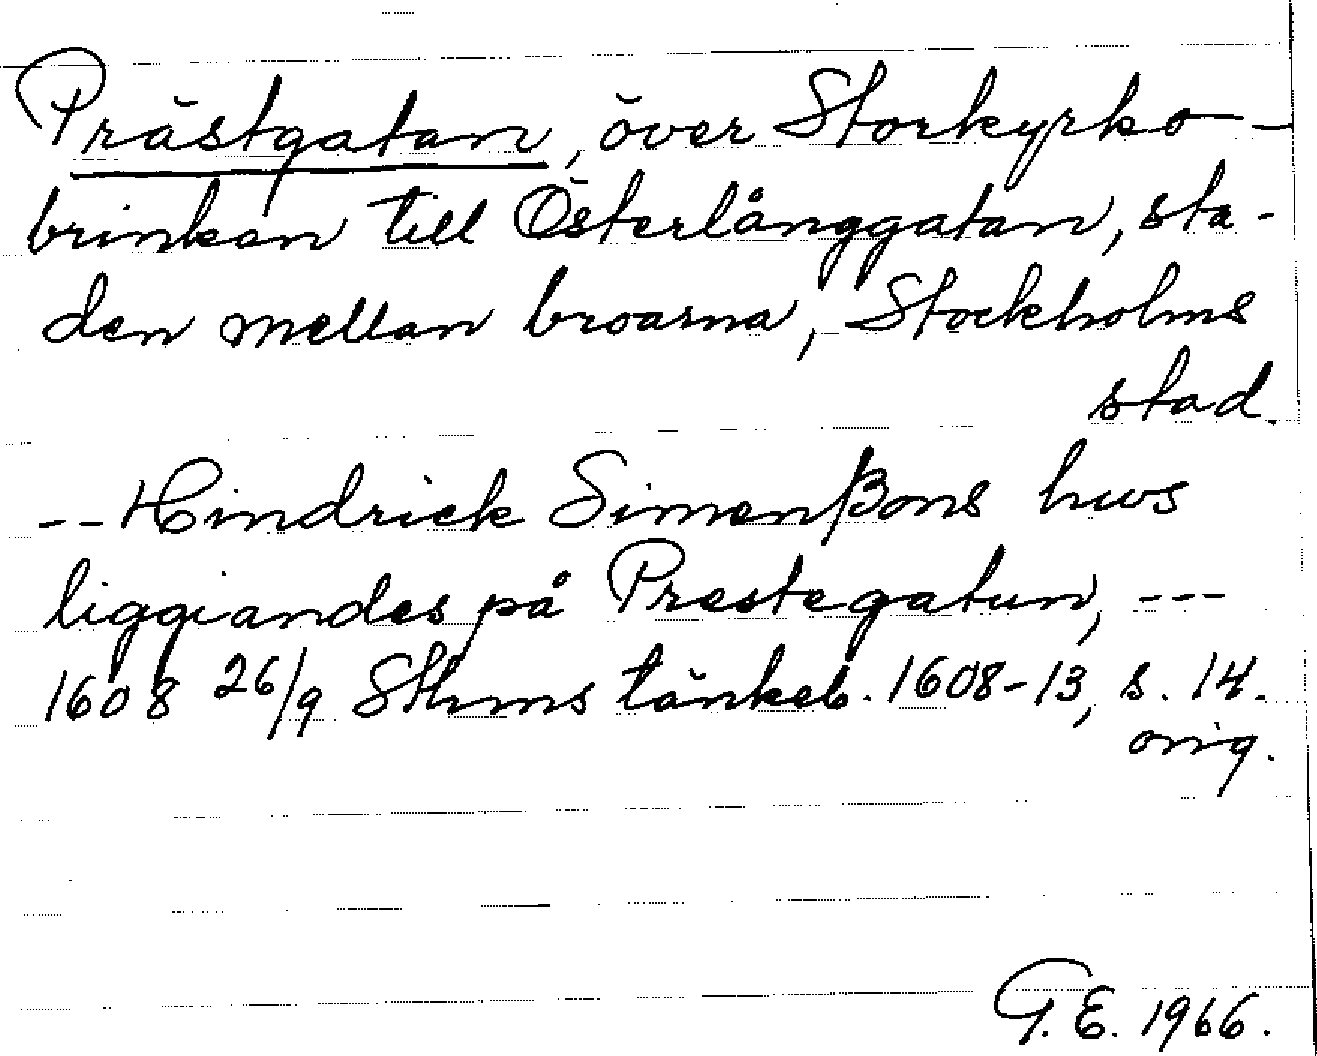 Prästgatan, över Storkyrko-
brinken till Österlånggatan, sta-
den mellan broarna, Stockholms
stad.
-- Hindrick Simenßons hws
liggiandes på Prestegatun, ---
1608 26/9 Sthms tänkeb. 1608-13, s. 14.
orig.
G. E. 1966.